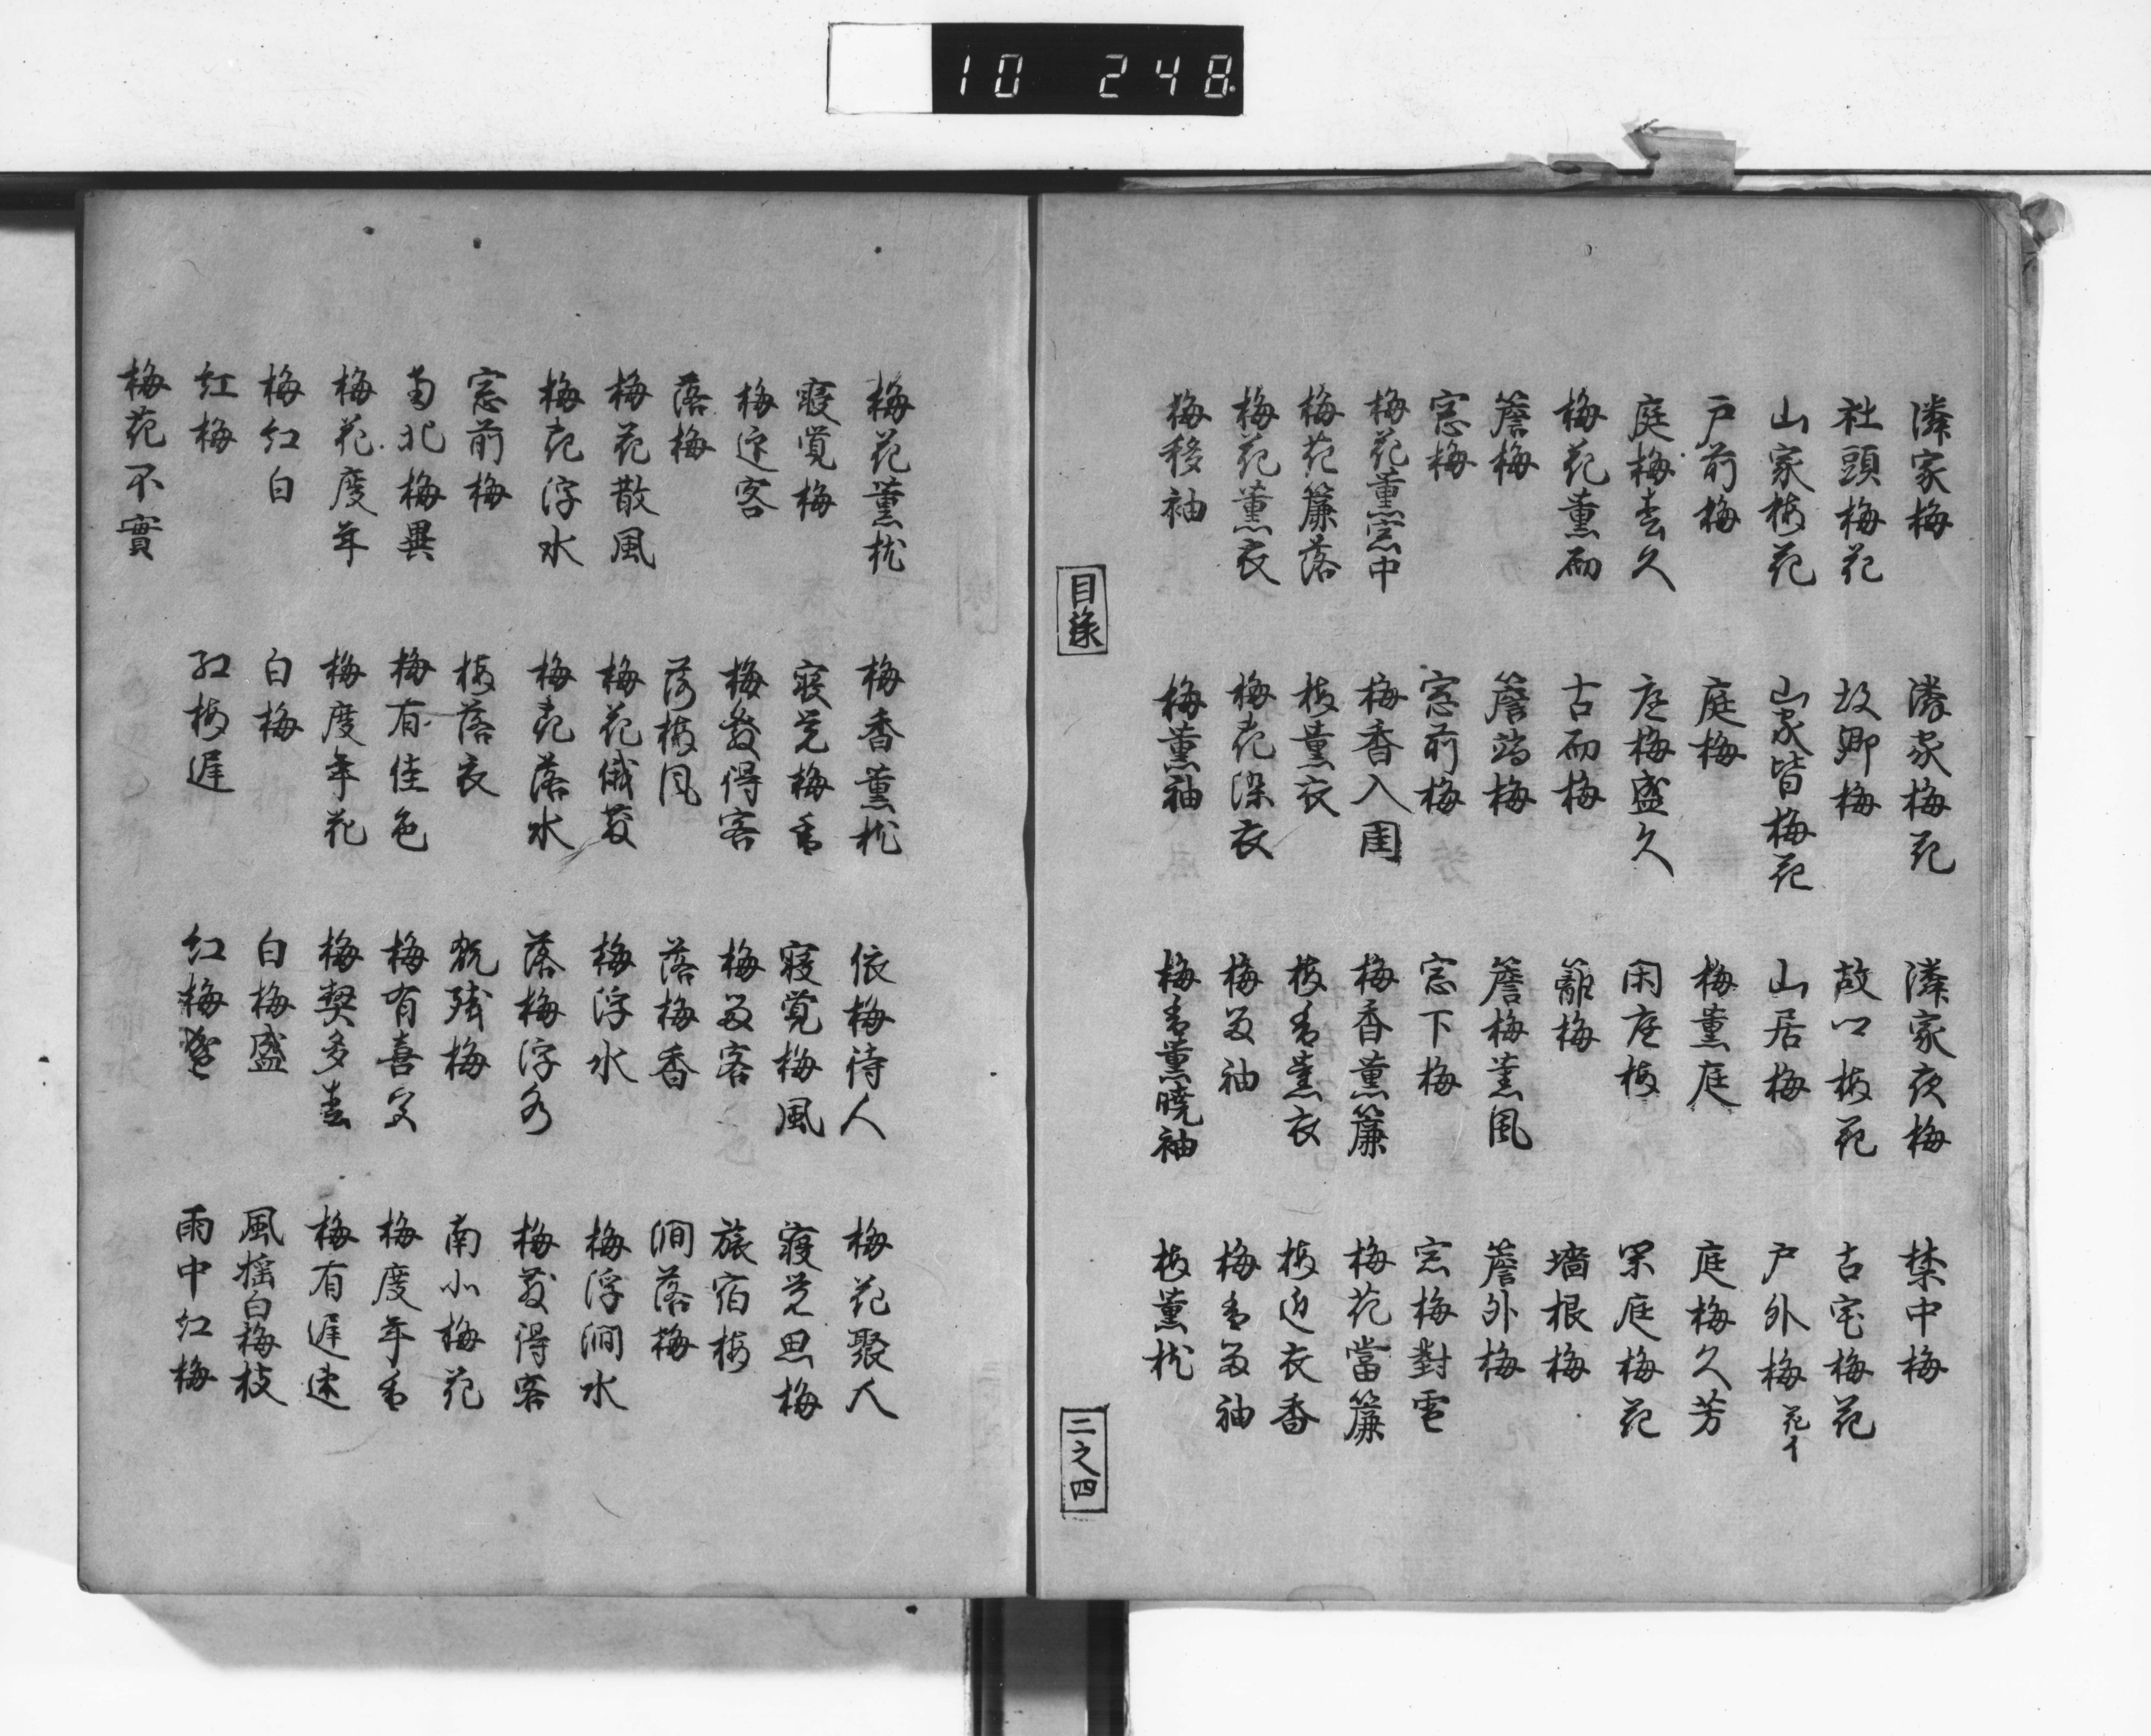 10 248
隣家梅 隣家梅花 隣家夜梅 禁中梅
社頭梅花 故郷梅 故郷梅花 古宅梅花
山家梅花 山家皆梅花 山居梅 戸外梅花イ
戸前梅 庭梅 梅薫庭 庭梅久芳
庭梅春久 庭梅盛久 閑庭梅 閑庭梅花
梅花薫砌 古砌梅 籬梅 墻根梅
簷梅 簷端梅 簷梅薫風 簷外梅
窓梅 窓前梅 窓下梅 窓梅對雪
梅花薫窓中 梅香入閨 梅香薫簾 梅花當簾
梅花簾落 梅薫衣 梅香薫衣 梅近衣香
梅花薫衣 梅花染衣 梅留袖 梅香留袖
梅移袖 梅薫袖 梅香薫曉袖 梅薫枕
目録
二之四
梅花薫枕 梅香薫枕 依梅待人 梅花聚人
寝覚梅 寝覚梅香 寝覚梅風 寝覚思梅
梅迎客 梅發得客 梅留客 旅宿梅
落梅 落梅風 落梅香 澗落梅
梅花散風 梅花俄散 梅浮水 梅浮澗水
梅花浮水 梅花落水 落梅浮水 梅散得客
窓前梅 梅落衣 翫残梅 南北梅花
南北梅異 梅有佳色 梅有喜色 梅度年香
梅花度年 梅度年花 梅契多春 梅有遅速
梅紅白 白梅 白梅盛 風揺白梅枝
紅梅 紅梅遅 紅梅盛 雨中紅梅
梅花不實